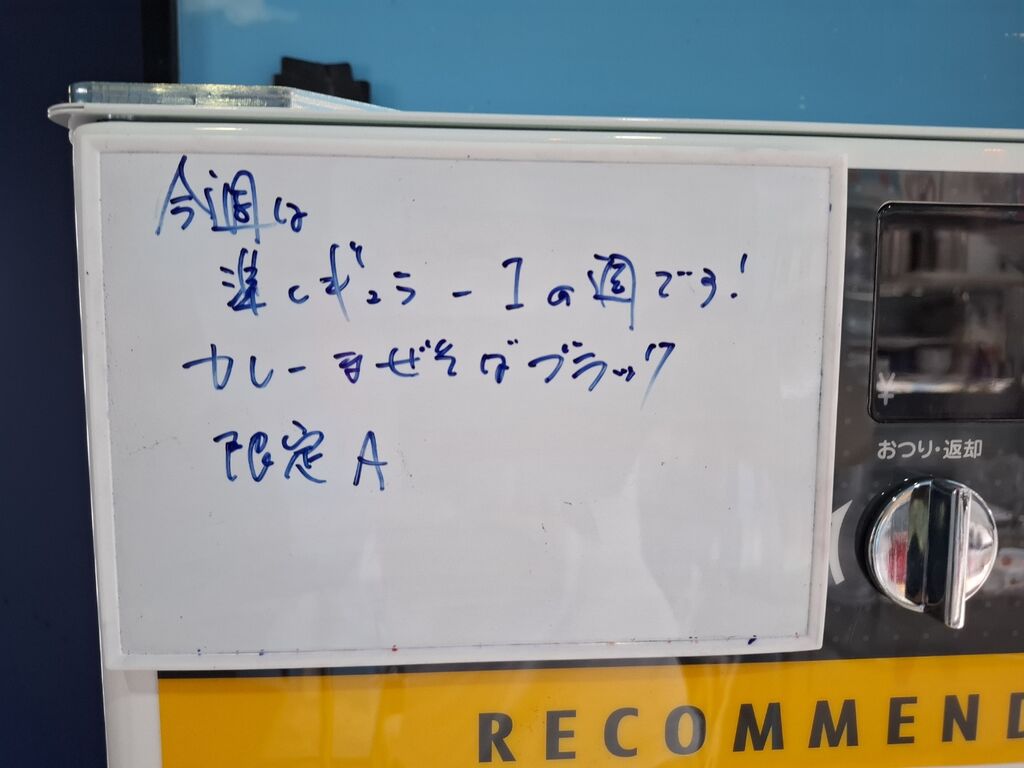 今週は
凄じギュラーIの週です!
カレーまぜそばブラック
限定A
¥
おつり・返却
RECOMMEND